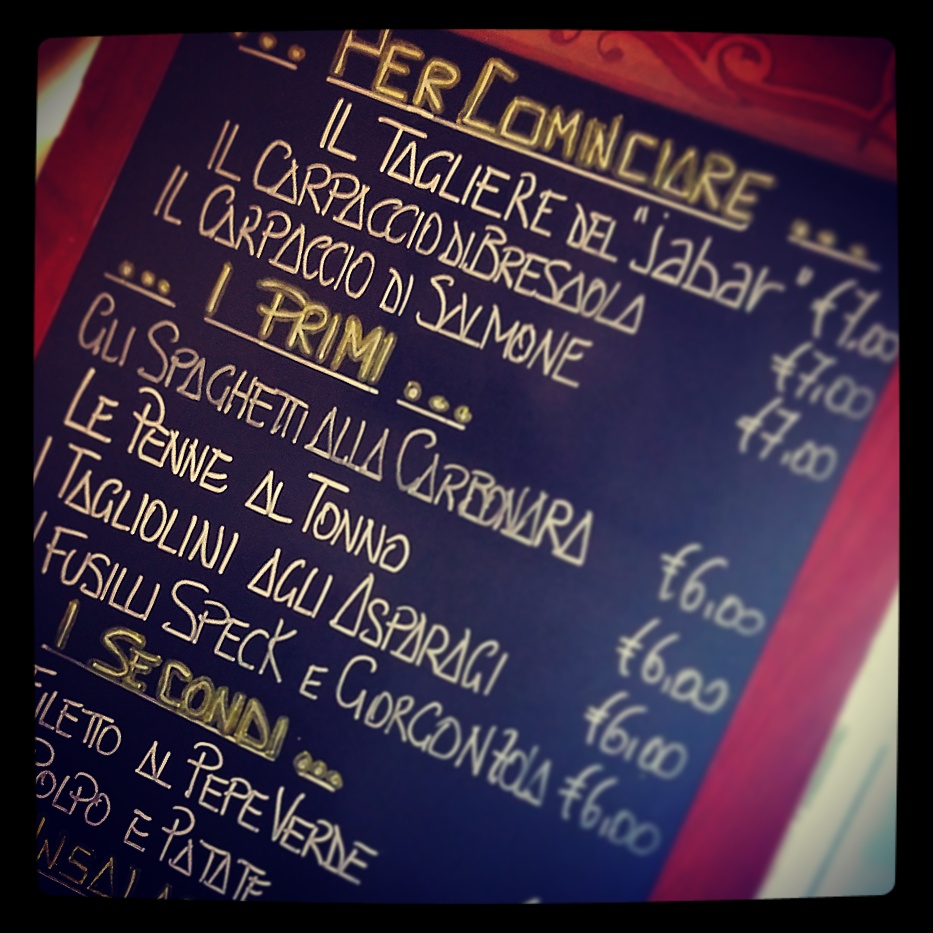 ... PER COMINCIARE ...
IL TAGLIERE DEL "jabar" €7,00
IL CARPACCIO DI BRESAOLA €7,00
IL CARPACCIO DI SALMONE €7,00
... I PRIMI ...
GLI SPAGHETTI ALLA CARBONARA €6,00
LE PENNE AL TONNO €6,00
I TAGLIOLINI AGLI ASPARAGI €6,00
I FUSILLI SPECK E GORGONZOLA €6,00
I SECONDI ...
FILETTO AL PEPE VERDE
POLPO E PATATE